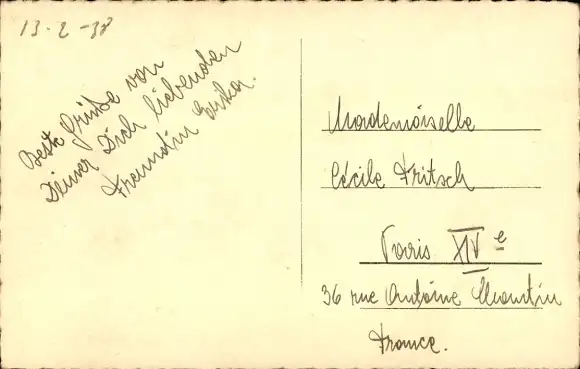 13-2-38
Beste Grüße von
Deiner Dich liebenden
Freundin Erika.
Mademoiselle
Cécile Fritsch
Paris XIVe
36 rue Antoine Chantin
France.